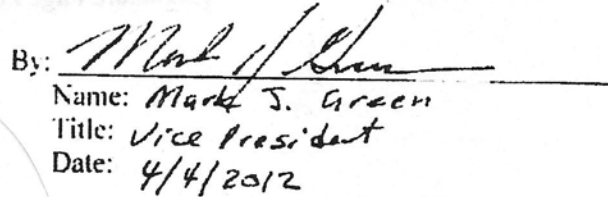 By: Mark J Green
Name: Mark J. Green
Title: Vice President
Date: 4/4/2012